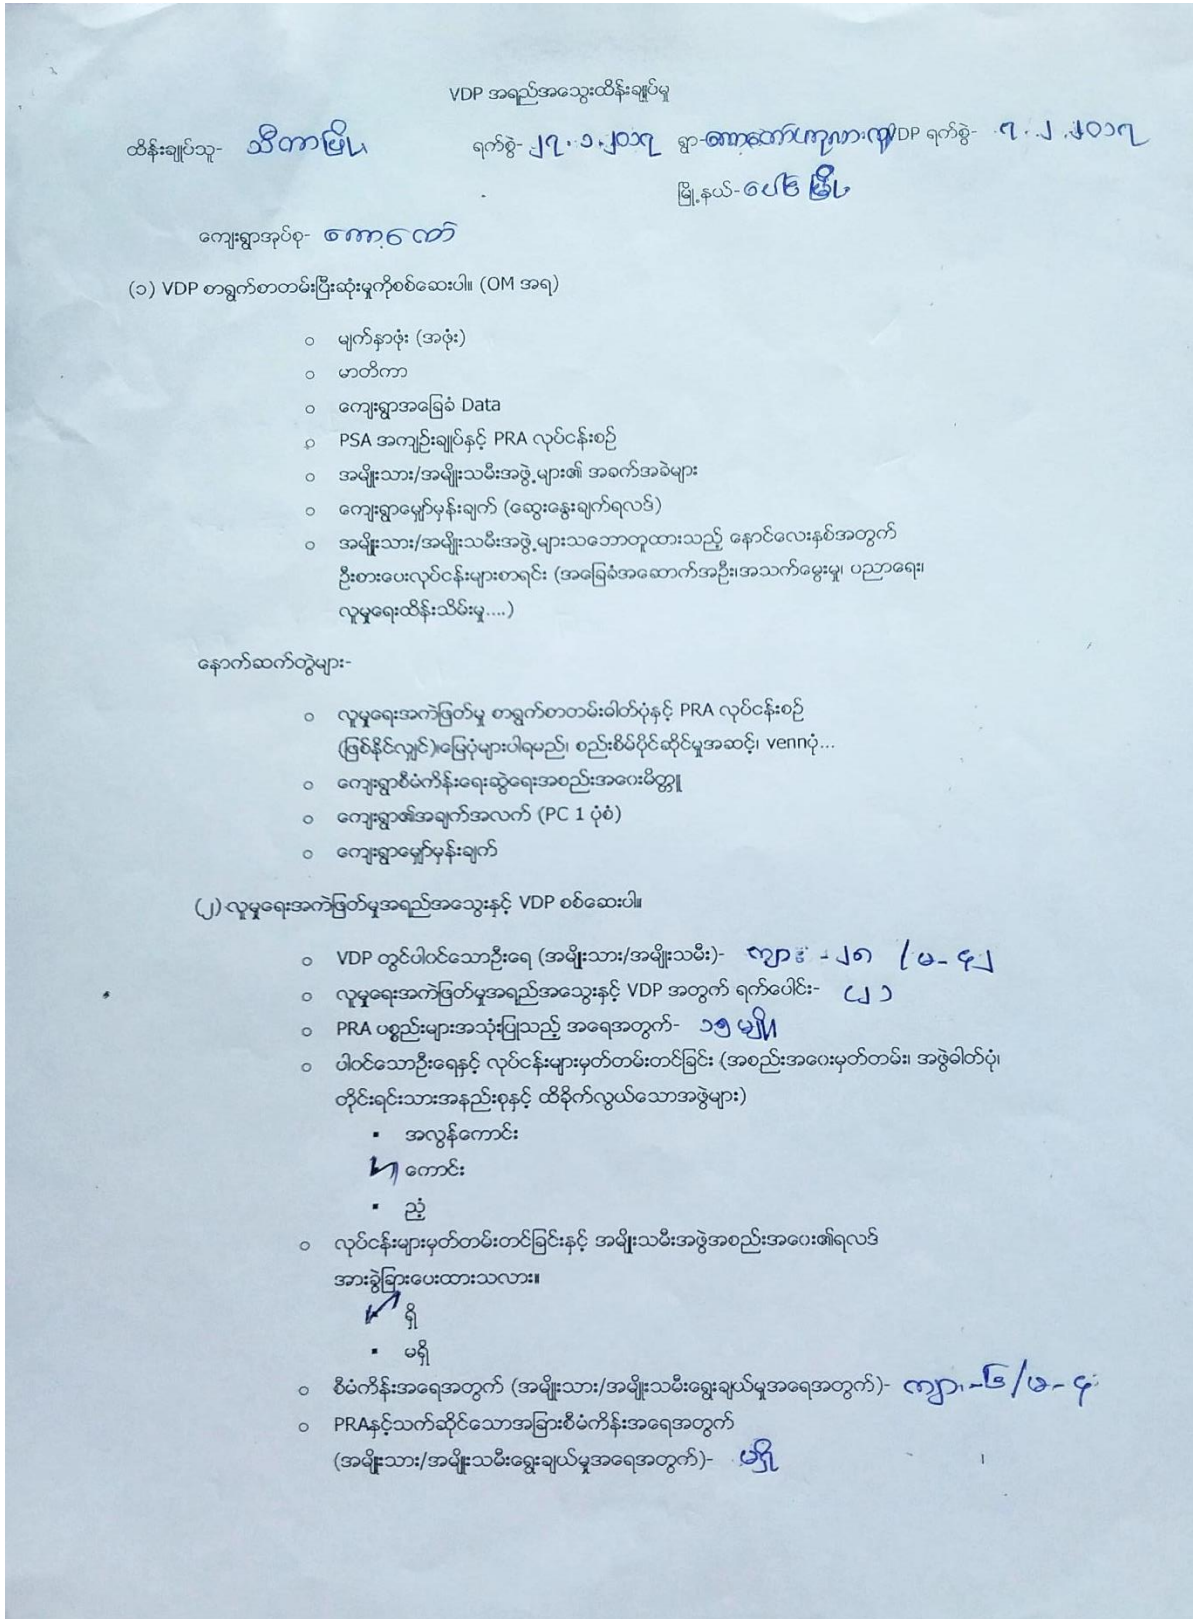 VDP အရည်အသွေးထိန်းချုပ်မှု
ထိန်းချုပ်သူ- သီတာဖြိုး ရက်စွဲ- ၂၇.၁.၂၀၁၇ ရွာ- VDP ရက်စွဲ- ၇.၂.၂၀၁၇
မြို့နယ်-ပေါင်မြို့
ကျေးရွာအုပ်စု- ကော့ဒေါ်
(၁) VDP စာရွက်စာတမ်းပြီးဆုံးမှုကိုစစ်ဆေးပါ။ (OM အရ)
○ မျက်နှာဖုံး (အဖုံး)
○ မာတိကာ
○ ကျေးရွာအခြေခံ Data
○ PSA အကျဉ်းချုပ်နှင့် PRA လုပ်ငန်းစဉ်
○ အမျိုးသား/အမျိုးသမီးအဖွဲ့များ၏ အခက်အခဲများ
○ ကျေးရွာမျှော်မှန်းချက် (ဆွေးနွေးချက်ရလဒ်)
○ အမျိုးသား/အမျိုးသမီးအဖွဲ့များသဘောတူထားသည့် နောင်လေးနှစ်အတွက်
ဦးစားပေးလုပ်ငန်းများစာရင်း (အခြေခံအဆောက်အဦး၊အသက်မွေးမှု၊ ပညာရေး၊
လူမှုရေးထိန်းသိမ်းမှု....)
နောက်ဆက်တွဲများ-
○ လူမှုရေးအကဲဖြတ်မှု စာရွက်စာတမ်းဓါတ်ပုံနှင့် PRA လုပ်ငန်းစဉ်
(ဖြစ်နိုင်လျှင်)၊မြေပုံများပါရမည်၊ စည်းစိမ်ပိုင်ဆိုင်မှုအဆင့်၊ vennပုံ...
○ ကျေးရွာစီမံကိန်းရေးဆွဲရေးအစည်းအဝေးမိတ္တူ
○ ကျေးရွာ၏အချက်အလက် (PC 1 ပုံစံ)
○ ကျေးရွာမျှော်မှန်းချက်
(၂) လူမှုရေးအကဲဖြတ်မှုအရည်အသွေးနှင့် VDP စစ်ဆေးပါ။
○ VDP တွင်ပါဝင်သောဦးရေ (အမျိုးသား/အမျိုးသမီး)- ကျား - ၂၈ / မ - ၄၂
○ လူမှုရေးအကဲဖြတ်မှုအရည်အသွေးနှင့် VDP အတွက် ရက်ပေါင်း-
○ PRA ပစ္စည်းများအသုံးပြုသည့် အရေအတွက်- ၁၅ မျိုး
○ ပါဝင်သောဦးရေနှင့် လုပ်ငန်းများမှတ်တမ်းတင်ခြင်း (အစည်းအဝေးမှတ်တမ်း၊ အဖွဲဓါတ်ပုံ၊
တိုင်းရင်းသားအနည်းစုနှင့် ထိခိုက်လွယ်သောအဖွဲများ)
▪ အလွန်ကောင်း
ကောင်း
▪ ညံ့
○ လုပ်ငန်းများမှတ်တမ်းတင်ခြင်းနှင့် အမျိုးသမီးအဖွဲအစည်းအဝေး၏ရလဒ်
အားခွဲခြားပေးထားသလား။
ရှိ
▪ မရှိ
○ စီမံကိန်းအရေအတွက် (အမျိုးသား/အမျိုးသမီးရွေးချယ်မှုအရေအတွက်)- ကျား-၆/မ-၄
○ PRAနှင့်သက်ဆိုင်သောအခြားစီမံကိန်းအရေအတွက်
(အမျိုးသား/အမျိုးသမီးရွေးချယ်မှုအရေအတွက်)- မရှိ